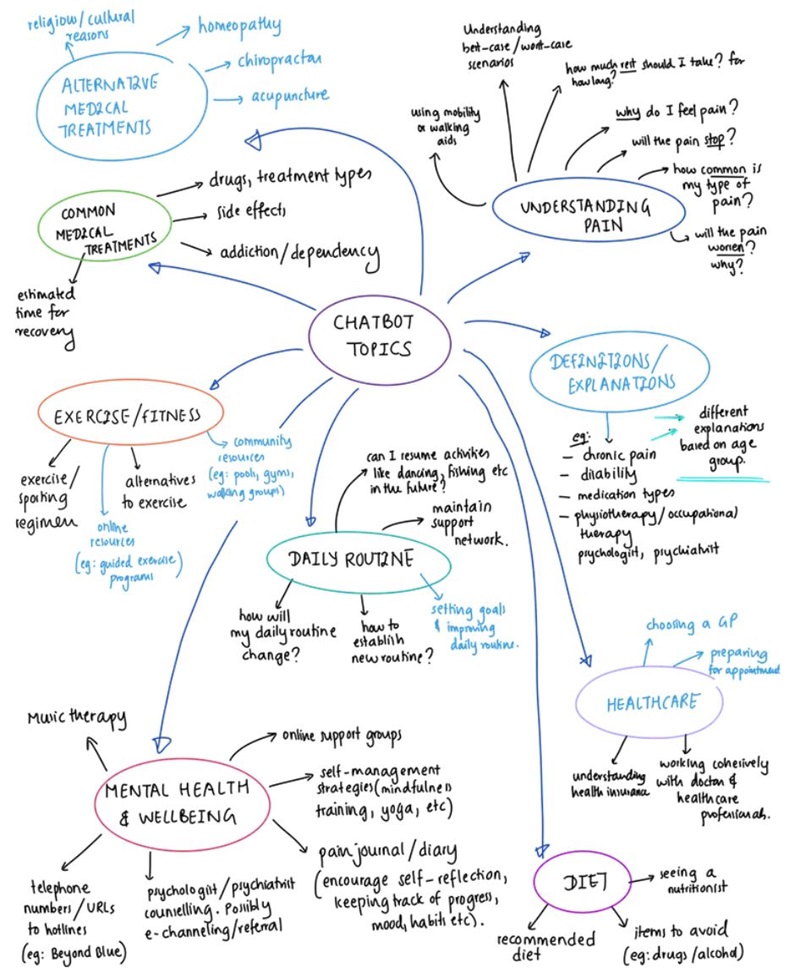 religious/cultural
reasons
homeopathy
chiropractor
acupuncture
ALTERNATIVE
MEDICAL
TREATMENTS
Understanding
best-case/worst-case
scenarios
how much rest should I take? for
how long?
using mobility
or walking
aids
why do I feel pain?
will the pain stop?
how common is
my type of
pain?
will the pain
worsen?
why?
UNDERSTANDING
PAIN
COMMON
MEDICAL
TREATMENTS
drugs, treatment types
side effects
addiction/dependency
estimated
time for
recovery
CHATBOT
TOPICS
DEFINITIONS/
EXPLANATIONS
eg:
- chronic pain
- disability
- medication types
- physiotherapy/occupational
therapy
psychologist, psychiatrist
different
explanations
based on age
group.
EXERCISE/FITNESS
exercise/
sporting
regimen
online
resources
(eg: guided exercise
programs)
alternatives
to exercise
community
resources
(eg: pools, gyms,
walking groups)
can I resume activities
like dancing, fishing etc
in the future?
maintain
support
network.
DAILY ROUTINE
how will
my daily routine
change?
how to
establish
new routine?
setting goals
& improving
daily routine.
choosing a GP
preparing
for appointment
HEALTHCARE
understanding
health insurance
working cohesively
with doctors &
healthcare
professionals.
Music therapy
online support groups
self-management
strategies (mindfulness
training, yoga, etc)
MENTAL HEALTH
& WELLBEING
pain journal/diary
(encourage self-reflection,
keeping track of progress,
mood, habits etc).
telephone
numbers/URLs
to hotlines
(eg: Beyond Blue)
psychologist/psychiatrist
counselling. Possibly
e-channeling/referral
DIET
seeing a
nutritionist
recommended
diet
items to avoid
(eg: drugs/alcohol)